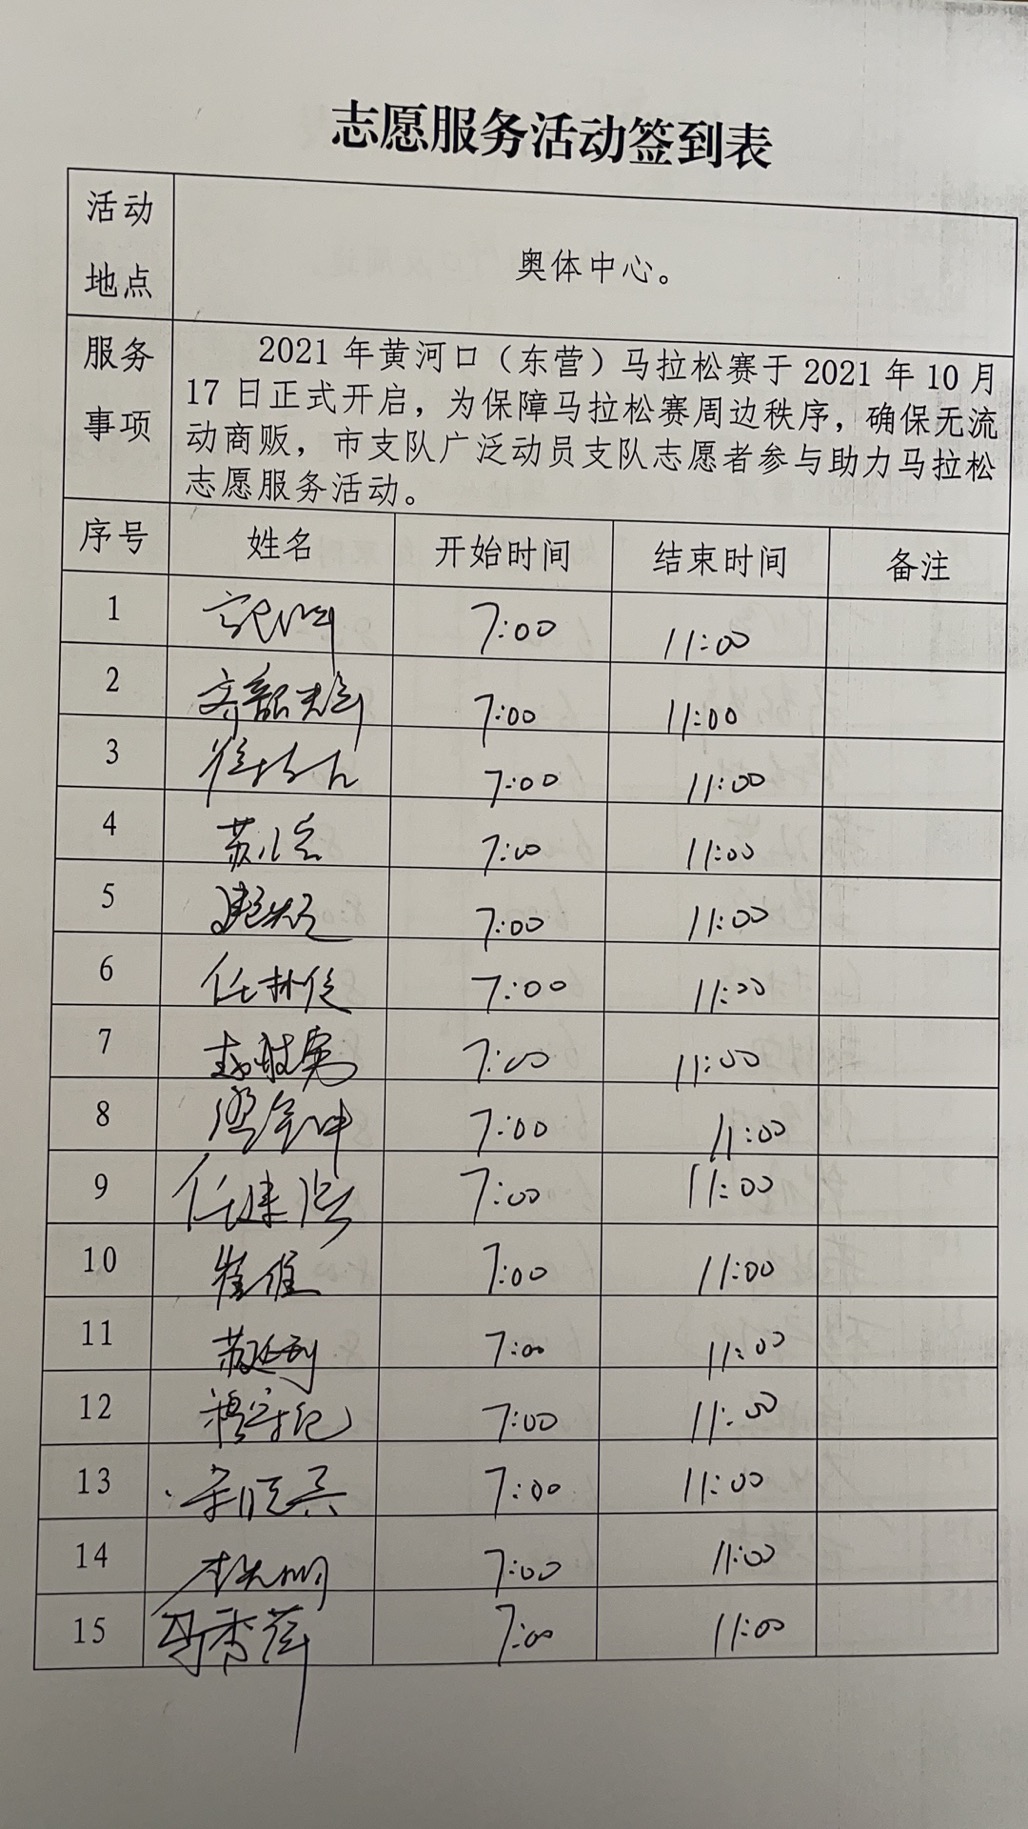 志愿服务活动签到表
活动
地点
奥体中心。
服务
事项
2021 年黄河口（东营）马拉松赛于 2021 年 10 月
17 日正式开启，为保障马拉松赛周边秩序，确保无流
动商贩，市支队广泛动员支队志愿者参与助力马拉松
志愿服务活动。
序号 姓名 开始时间 结束时间 备注
1 7:00 11:00
2 7:00 11:00
3 7:00 11:00
4 7:00 11:00
5 7:00 11:00
6 7:00 11:00
7 7:00 11:00
8 7:00 11:00
9 7:00 11:00
10 崔维 7:00 11:00
11 7:00 11:00
12 7:00 11:00
13 7:00 11:00
14 7:00 11:00
15 马秀萍 7:00 11:00